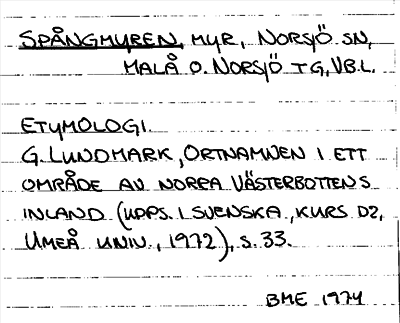 SPÅNGMYREN, MYR, NORSJÖ SN,
MALÅ O. NORSJÖ TG, VB.L.
ETYMOLOGI.
G. LUNDMARK, ORTNAMNEN I ETT
OMRÅDE AV NORRA VÄSTERBOTTENS
INLAND (UPPS. I SVENSKA, KURS D2,
UMEÅ UNIV., 1972), S. 33.
BME 1974